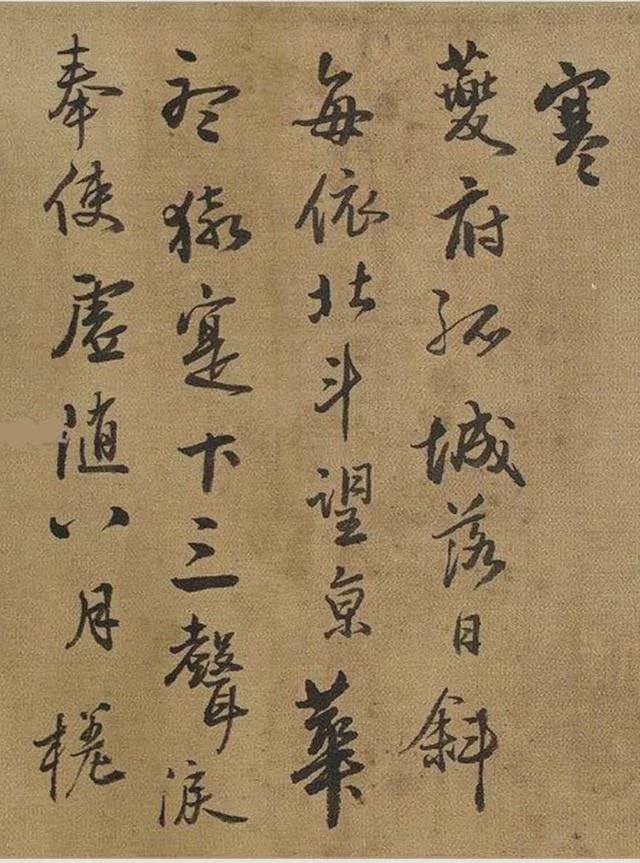 寒
夔府孤城落日斜
每依北斗望京華
听猿寔下三聲淚
奉使虚随八月槎